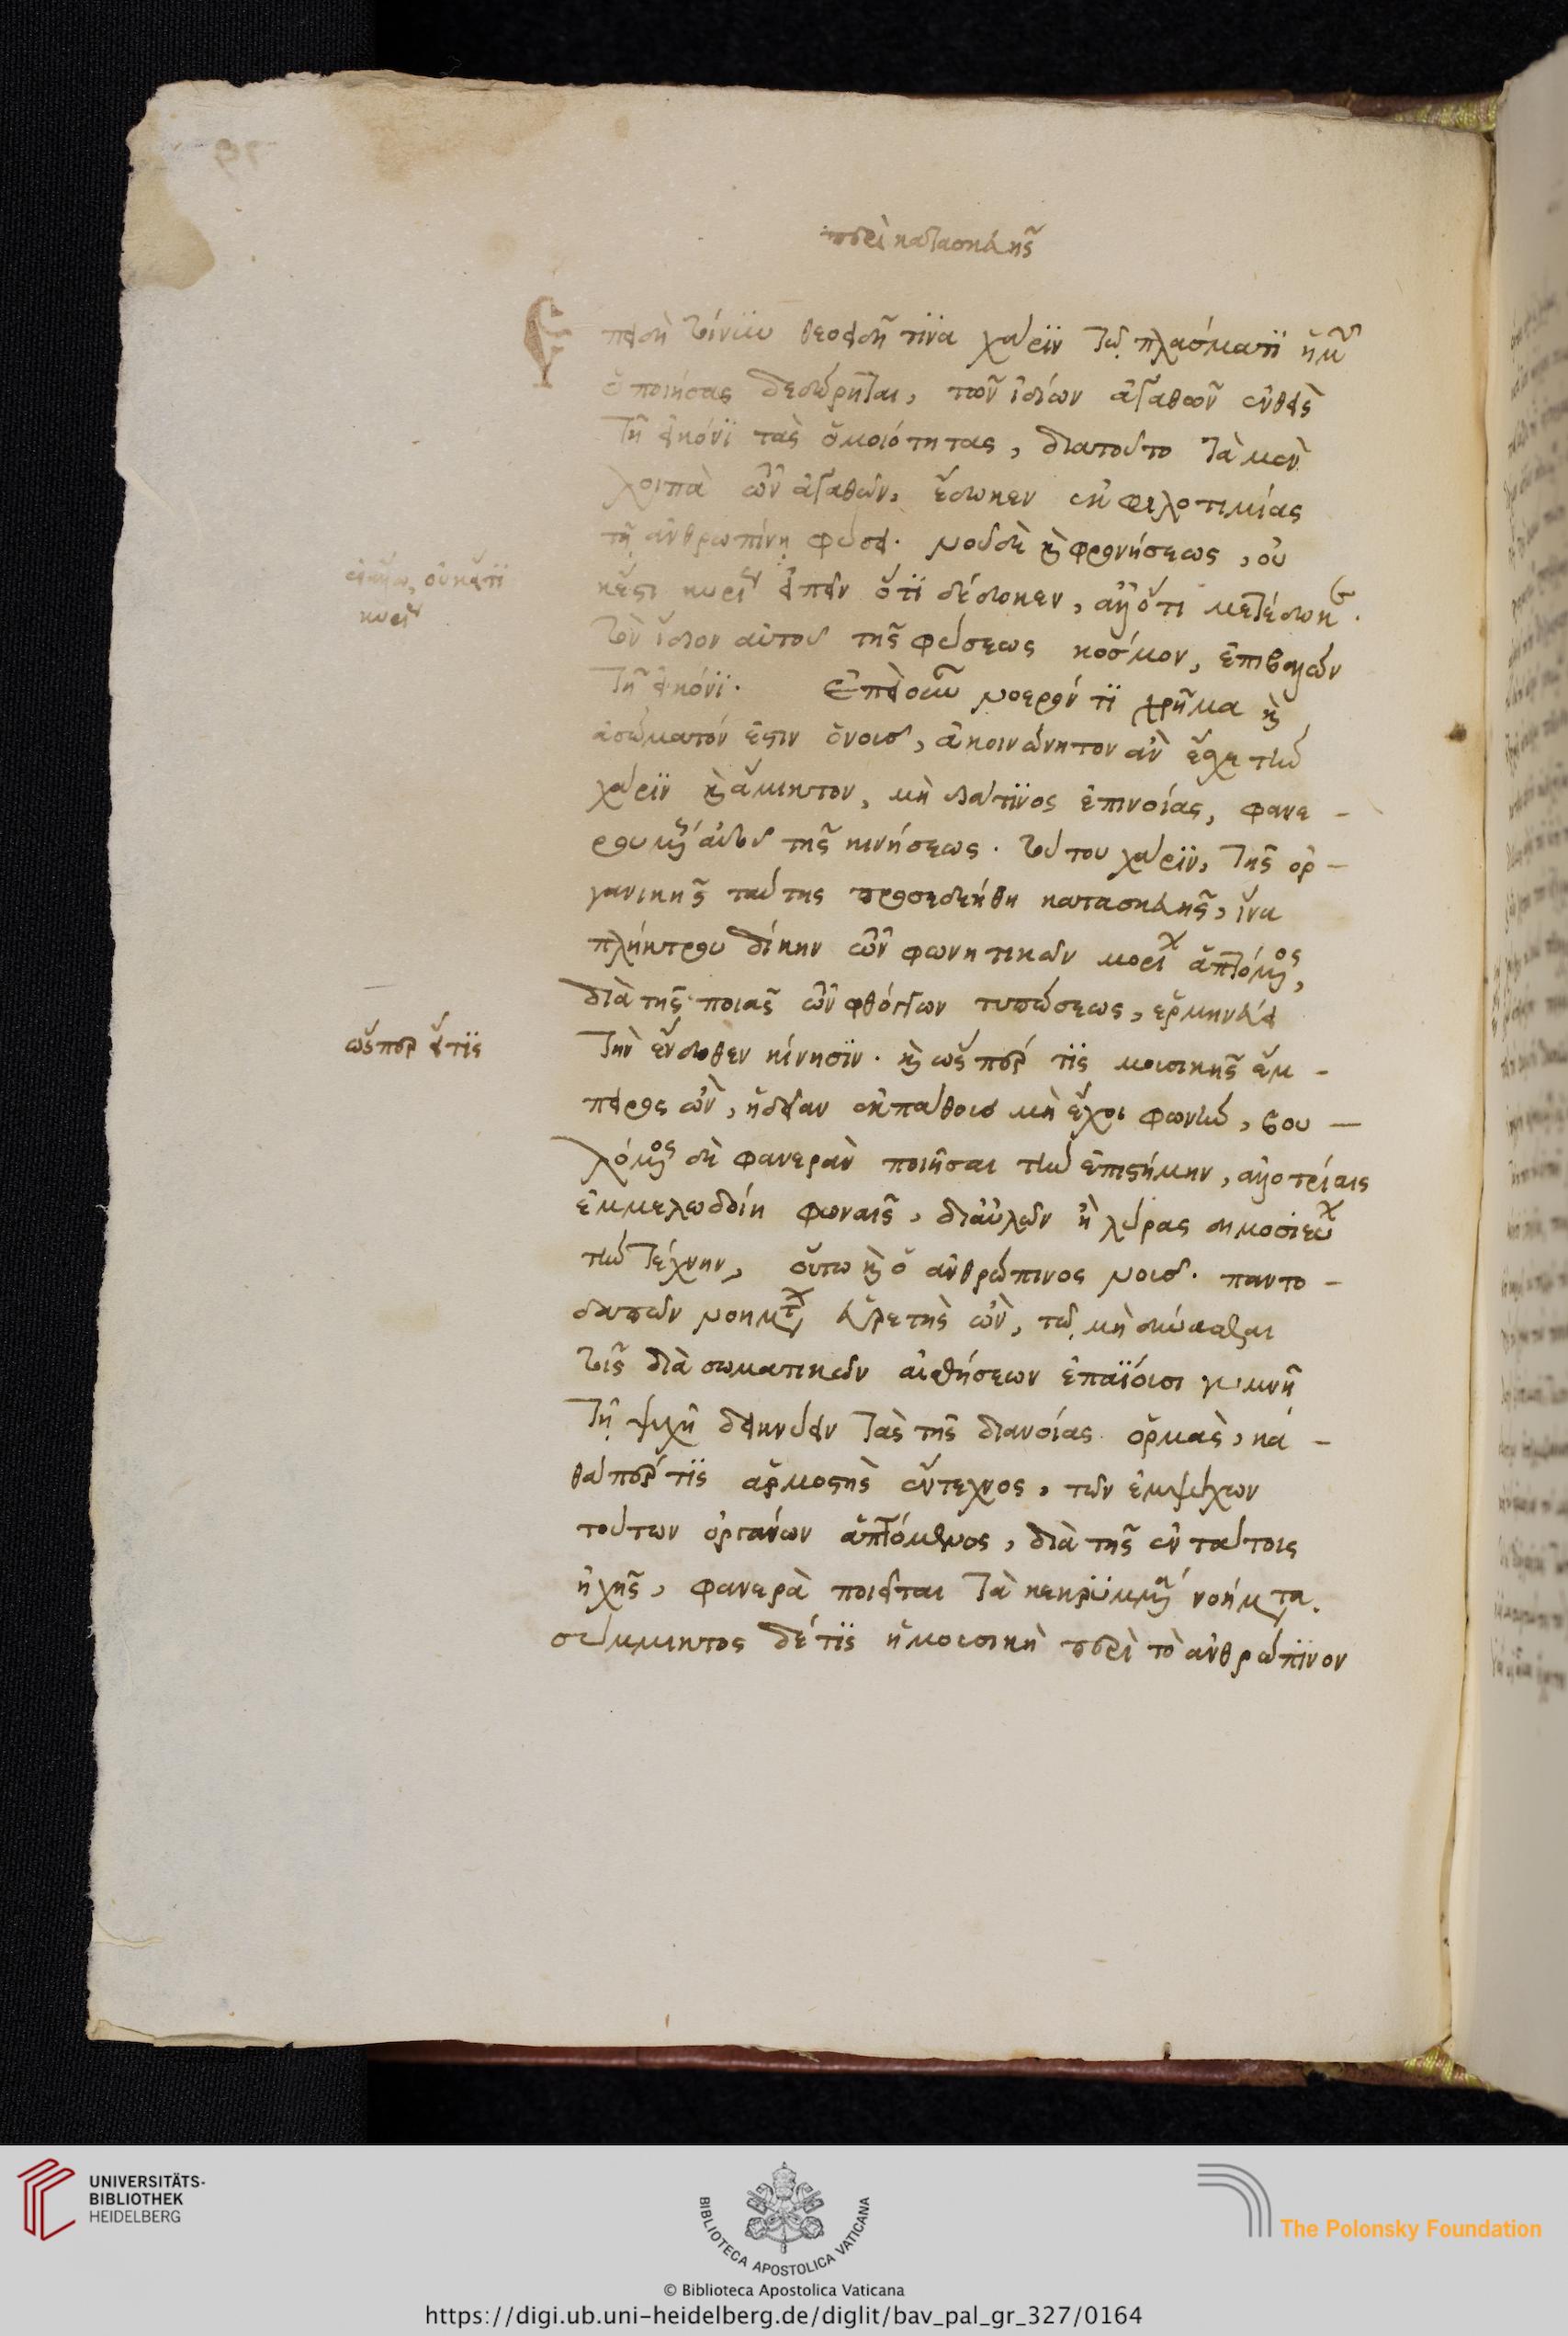 περὶ κατασκευῆς
Επειδὴ τοίνυν θεοειδῆ τινα χάριν τῷ πλάσματι ἡμῶν
ὁ ποιήσας δεδώρηται, τῶν ἰδίων ἀγαθῶν ἐνθεὶς
τῇ εἰκόνι τὰς ὁμοιότητας, διατοῦτο τὰ μὲν
λοιπὰ τῶν ἀγαθῶν, ἔδωκεν ἐκ φιλοτιμίας
τῇ ἀνθρωπίνῃ φύσει. νοῦ δὲ καὶ φρονήσεως, οὐ
κέστι κυρίως εἰπεῖν ὅτι δέδωκεν, ἀλλ' ὅτι μετέδωκε.
τὸν ἴδιον αὐτοῦ τῆς φύσεως κόσμον, ἐπιβαλὼν
τῇ εἰκόνι. Ἐπεὶ οὖν νοερόν τι χρῆμα καὶ
ἀσώματόν ἐστιν ὁ νοῦς, ἀκοινώνητον ἂν ἔσχε τὴν
χάριν καὶ ἄμικτον, μὴ διά τινος ἐπινοίας, φανε-
ρουμένης αὐτοῦ τῆς κινήσεως. τούτου χάριν, τῆς ὀρ-
γανικῆς ταύτης προσεδεήθη κατασκευῆς, ἵνα
πλήκτρου δίκην τῶν φωνητικῶν μορίων ἁπτόμενος,
διὰ τῆς ποιᾶς τῶν φθόγγων τυπώσεως, ἑρμηνεύει
τὴν ἔνδοθεν κίνησιν. καὶ ὥσπερ τις μουσικῆς ἔμ-
πειρος ὢν, ἰδίαν ἐκ πάθους μὴ ἔχοι φωνὴν, βου-
λόμενος δὲ φανερὰν ποιῆσαι τὴν ἐπιστήμην, ἀλλοτρίαις
ἐμμελωδοίη φωναῖς, δι' αὐλῶν ἢ λύρας δημοσιεύων
τὴν τέχνην, οὕτω καὶ ὁ ἀνθρώπινος νοῦς. παντο-
δαπῶν νοημάτων εὑρετὴς ὢν, τῷ μὴ δύνασθαι
τοῖς διὰ σωματικῶν αἰσθήσεων ἐπαΐουσι γυμνῇ
τῇ ψυχῇ δεικνύειν τὰς τῆς διανοίας ὁρμὰς, κα-
θάπερ τις ἁρμοστὴς ἔντεχνος, τῶν ἐμψύχων
τούτων ὀργάνων ἁπτόμενος, διὰ τῆς ἐν τούτοις
ἠχῆς, φανερὰ ποιεῖται τὰ κεκρυμμένα νοήματα.
σύμμικτος δέ τις ἡ μουσικὴ περὶ τὸ ἀνθρώπινον
οὐκέτι
κυρίως
ὥσπερ εἴ τις
UNIVERSITÄTS-
BIBLIOTHEK
HEIDELBERG
BIBLIOTECA APOSTOLICA VATICANA
© Biblioteca Apostolica Vaticana
The Polonsky Foundation
https://digi.ub.uni-heidelberg.de/diglit/bav_pal_gr_327/0164